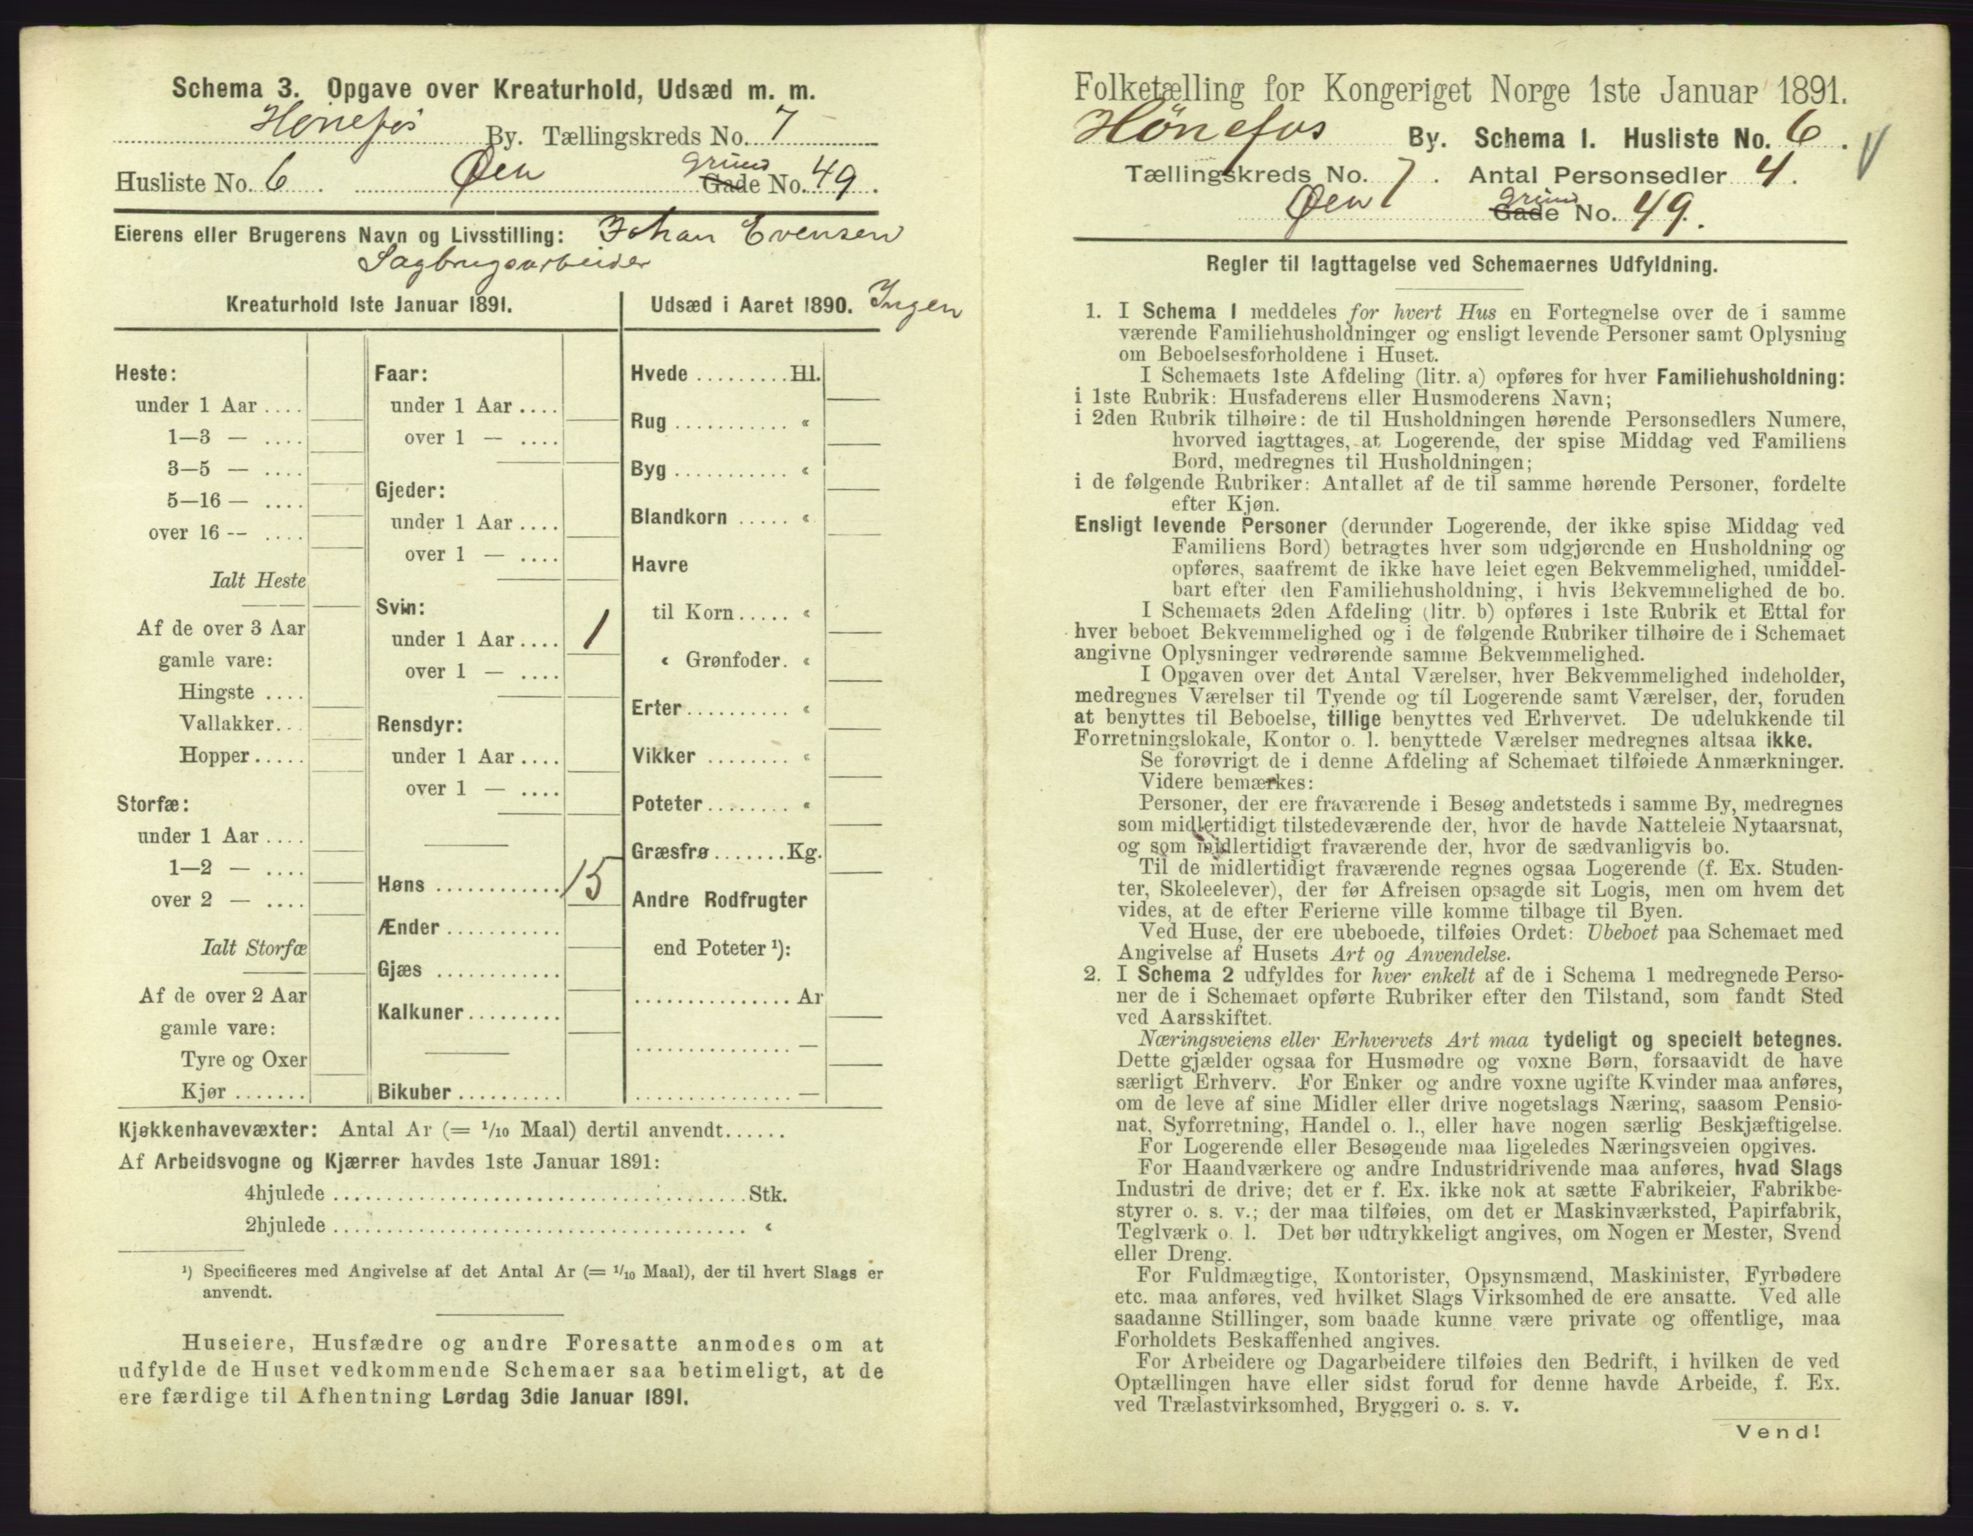 Schema 3. Opgave over Kreaturhold, Udsæd m. m.
Hønefos By. Tællingskreds No. 7
Husliste No. 6. Øen Grund Gade No. 49.
Eierens eller Brugerens Navn og Livsstilling: Johan Evensen
Sagbrugsarbeider
Kreaturhold 1ste Januar 1891.
Heste:
under 1 Aar ....
1—3 — ....
3—5 — ....
5—16 — ....
over 16 — ....
Ialt Heste
Af de over 3 Aar
gamle vare:
Hingste ....
Vallakker...
Hopper.....
Storfæ:
under 1 Aar ....
1—2 — ....
over 2 — ....
Ialt Storfæ
Af de over 2 Aar
gamle vare:
Tyre og Oxer
Kjør .......
Faar:
under 1 Aar ....
over 1 — ....
Gjeder:
under 1 Aar ....
over 1 — ....
Svin:
under 1 Aar .... 1
over 1 — ....
Rensdyr:
under 1 Aar ....
over 1 — ....
Høns ............ 15
Ænder ...........
Gjæs ............
Kalkuner.........
Bikuber ..........
Udsæd i Aaret 1890. Ingen
Hvede .........Hl.
Rug ........... «
Byg ........... «
Blandkorn ..... «
Havre
til Korn ..... «
« Grønfoder. «
Erter.......... «
Vikker ........ «
Poteter........ «
Græsfrø.......Kg.
Andre Rodfrugter
end Poteter ¹):
............... Ar
............... —
............... —
Kjøkkenhavevæxter: Antal Ar (= 1/10 Maal) dertil anvendt......
Af Arbeidsvogne og Kjærrer havdes 1ste Januar 1891:
4hjulede ........................................Stk.
2hjulede ........................................ «
¹) Specificeres med Angivelse af det Antal Ar (= 1/10 Maal), der til hvert Slags er
anvendt.
Huseiere, Husfædre og andre Foresatte anmodes om at
udfylde de Huset vedkommende Schemaer saa betimeligt, at de
ere færdige til Afhentning Lørdag 3die Januar 1891.
Folketælling for Kongeriget Norge 1ste Januar 1891.
Hønefos By. Schema 1. Husliste No. 6.
Tællingskreds No. 7. Antal Personsedler 4.
Øen Grund Gade No. 49.
Regler til Iagttagelse ved Schemaernes Udfyldning.
1. I Schema 1 meddeles for hvert Hus en Fortegnelse over de i samme
værende Familiehusholdninger og ensligt levende Personer samt Oplysning
om Beboelsesforholdene i Huset.
I Schemaets 1ste Afdeling (litr. a) opføres for hver Familiehusholdning:
i 1ste Rubrik: Husfaderens eller Husmoderens Navn;
i 2den Rubrik tilhøire: de til Husholdningen hørende Personsedlers Numere,
hvorved iagttages, at Logerende, der spise Middag ved Familiens
Bord, medregnes til Husholdningen;
i de følgende Rubriker: Antallet af de til samme hørende Personer, fordelte
efter Kjøn.
Ensligt levende Personer (derunder Logerende, der ikke spise Middag ved
Familiens Bord) betragtes hver som udgjørende en Husholdning og
opføres, saafremt de ikke have leiet egen Bekvemmelighed, umiddel-
bart efter den Familiehusholdning, i hvis Bekvemmelighed de bo.
I Schemaets 2den Afdeling (litr. b) opføres i 1ste Rubrik et Ettal for
hver beboet Bekvemmelighed og i de følgende Rubriker tilhøire de i Schemaet
angivne Oplysninger vedrørende samme Bekvemmelighed.
I Opgaven over det Antal Værelser, hver Bekvemmelighed indeholder,
medregnes Værelser til Tyende og til Logerende samt Værelser, der, foruden
at benyttes til Beboelse, tillige benyttes ved Erhvervet. De udelukkende til
Forretningslokale, Kontor o. l. benyttede Værelser medregnes altsaa ikke.
Se forøvrigt de i denne Afdeling af Schemaet tilføiede Anmærkninger.
Videre bemærkes:
Personer, der ere fraværende i Besøg andetsteds i samme By, medregnes
som midlertidigt tilstedeværende der, hvor de havde Natteleie Nytaarsnat,
og som midlertidigt fraværende der, hvor de sædvanligvis bo.
Til de midlertidigt fraværende regnes ogsaa Logerende (f. Ex. Studen-
ter, Skoleelever), der før Afreisen opsagde sit Logis, men om hvem det
vides, at de efter Ferierne ville komme tilbage til Byen.
Ved Huse, der ere ubeboede, tilføies Ordet: Ubeboet paa Schemaet med
Angivelse af Husets Art og Anvendelse.
2. I Schema 2 udfyldes for hver enkelt af de i Schema 1 medregnede Perso-
ner de i Schemaet opførte Rubriker efter den Tilstand, som fandt Sted
ved Aarsskiftet.
Næringsveiens eller Erhvervets Art maa tydeligt og specielt betegnes.
Dette gjælder ogsaa for Husmødre og voxne Børn, forsaavidt de have
særligt Erhverv. For Enker og andre voxne ugifte Kvinder maa anføres,
om de leve af sine Midler eller drive nogetslags Næring, saasom Pensio-
nat, Syforretning, Handel o. l., eller have nogen særlig Beskjæftigelse.
For Logerende eller Besøgende maa ligeledes Næringsveien opgives.
For Haandværkere og andre Industridrivende maa anføres, hvad Slags
Industri de drive; det er f. Ex. ikke nok at sætte Fabrikeier, Fabrikbe-
styrer o. s. v.; der maa tilføies, om det er Maskinværksted, Papirfabrik,
Teglværk o. l. Det bør udtrykkeligt angives, om Nogen er Mester, Svend
eller Dreng.
For Fuldmægtige, Kontorister, Opsynsmænd, Maskinister, Fyrbødere
etc. maa anføres, ved hvilket Slags Virksomhed de ere ansatte. Ved alle
saadanne Stillinger, som baade kunne være private og offentlige, maa
Forholdets Beskaffenhed angives.
For Arbeidere og Dagarbeidere tilføies den Bedrift, i hvilken de ved
Optællingen have eller sidst forud for denne havde Arbeide, f. Ex.
ved Trælastvirksomhed, Bryggeri o. s. v.
Vend!